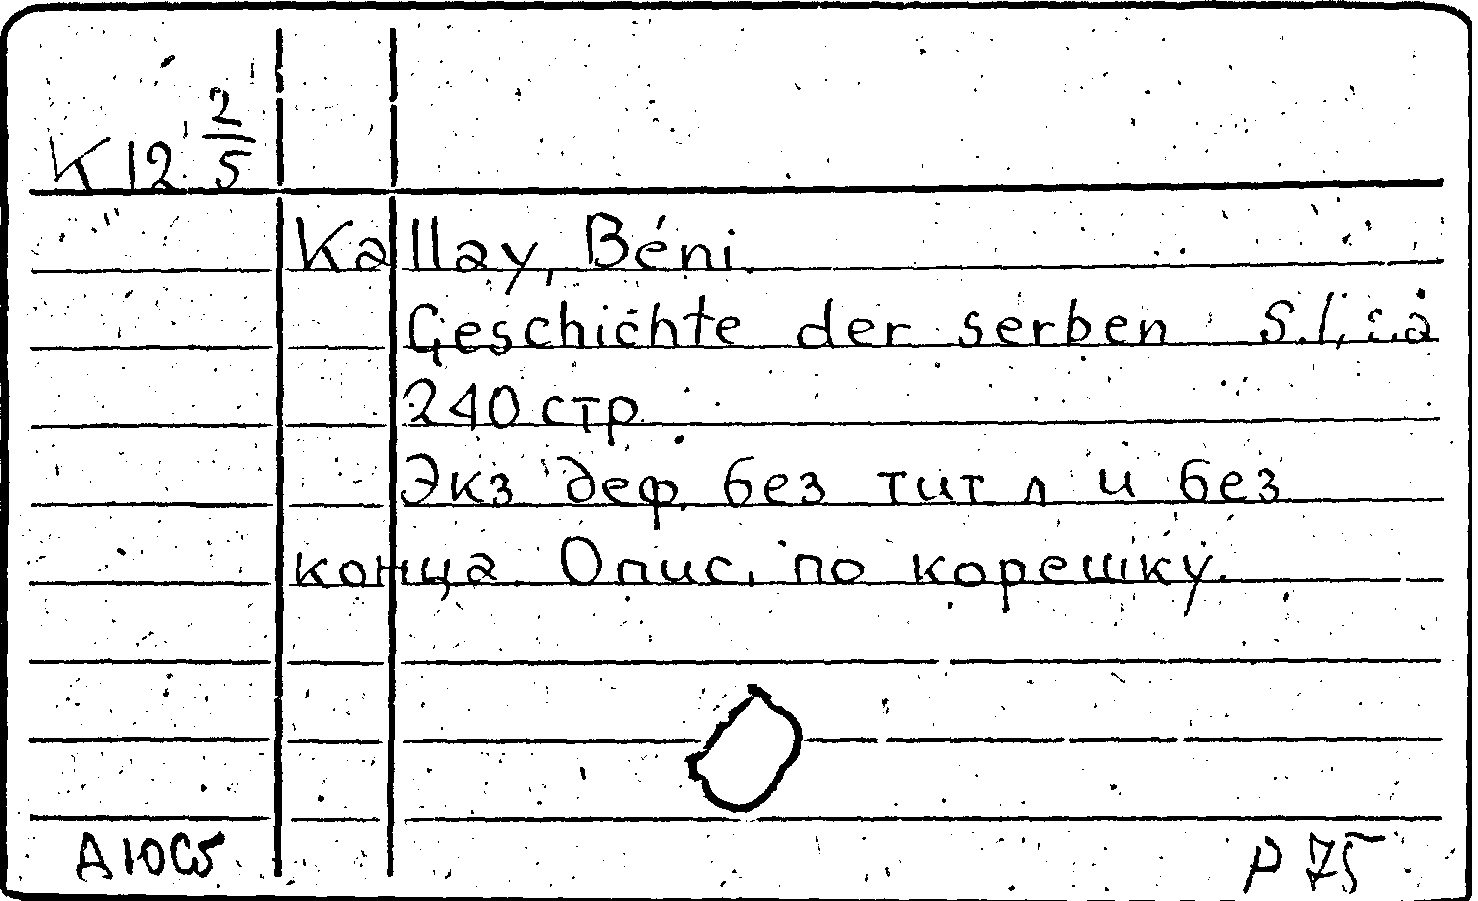 К 12 2/5
Kallay, Béni.
Geschichte der serben S.l., i.a
240 стр.
Экз деф. без тит л и без
конца. Опис. по корешку.
Р 75